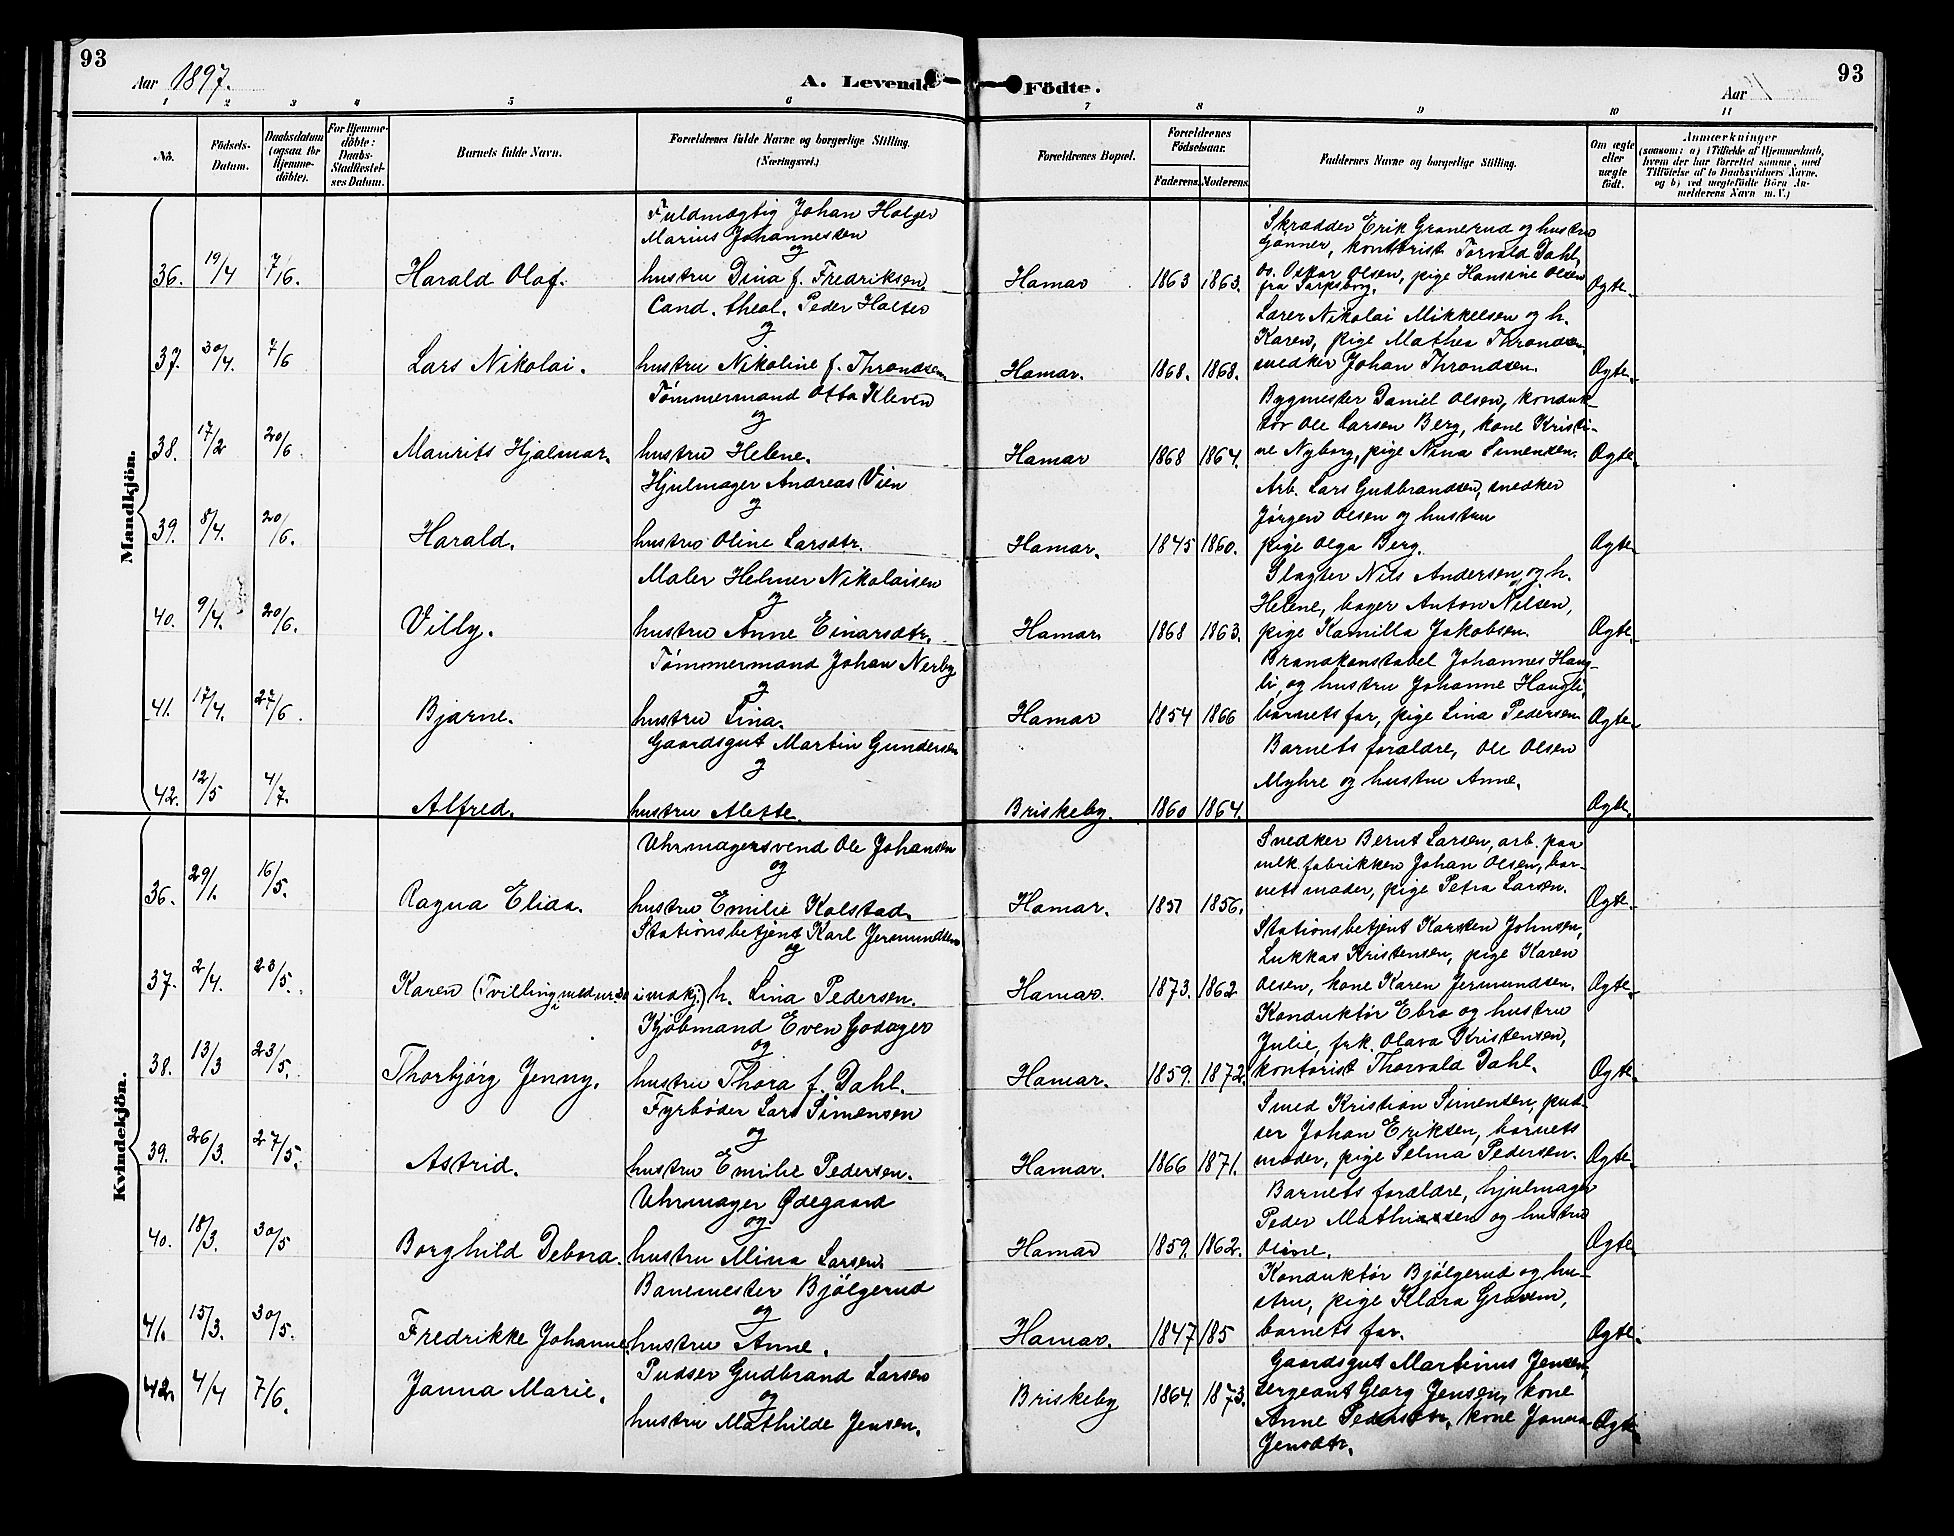 93
Aar 1897.
A. Levende Födte.
Aar 1
93
1 2 3 4 5 6 7 8 9 10 11
No.
Födsels-Datum.
Daabsdatum (ogsaa for Hjemme-döbte).
For Hjemme-döbte: Daabs-Stadfæstel-ses Datum.
Barnets fulde Navn.
Forældrenes fulde Navne og borgerlige Stilling. (Næringsvei.)
Forældrenes Bopæl.
Forældrenes Födselsaar.
Faderens. Moderens.
Faddernes Navne og borgerlige Stilling.
Om ægte eller uægte födt.
Anmærkninger
(saasom: a) i Tilfælde af Hjemmedaab, hvem der har forrettet samme, med Tilföielse af to Daabsvidners Navne, og b) ved uægtefödte Börn Anmelderens Navn m. V.)
Mandkjön.
36. 19/4 7/6. Harald Olaf.
Fuldmægtig Johan Holger
Marius Johannessen
og
hustru Dina f. Fredriksen.
Hamar 1863 1863.
Skrædder Erik Granerud og hustru
Gunner, kontorist Torvald Dahl,
os. Oskar Olsen, pige Hansine Olsen
fra Sarpsborg.
Ægte.
37. 30/4. 7/6 Lars Nikolai.
Cand. theol. Peder Holter
og
hustru Nikoline f. Throndsen.
Hamar. 1868. 1868.
Lærer Nikolai Mikkelsen og h.
Karen, pige Mathea Throndsen,
snedker Johan Throndsen.
Ægte.
38. 17/2 20/6 Maurits Hjalmar.
Tømmermand Otto Kleven
og
hustru Helene.
Hamar 1868 1864.
Bygmester Daniel Olsen, konduk-
tør Ole Larsen Berg, kone Kristi-
ne Nyborg, pige Nina Simensen.
Ægte.
39. 8/4. 20/6. Harald.
Hjulmager Andreas Vien
og
hustru Oline Larsdtr.
Hamar. 1845 1860.
Arb. Lars Gudbrandsen, snedker
Jørgen Olsen og hustru
pige Olga Berg.
Ægte
40. 9/4. 20/6. Villy.
Maler Helmer Nikolaisen
og
hustru Anne Einarsdtr.
Hamar 1868 1863.
Slagter Nils Andersen og h.
Helene, bager Anton Nilsen,
pige Kamilla Jakobsen.
Ægte.
41. 17/4. 27/6. Bjarne.
Tømmermand Johan Nerby
og
hustru Lina.
Hamar 1854 1866
Brandkonstabel Johannes Haug-
li, og hustru Johanne Haugli,
barnets far, pige Lina Pedersen.
Ægte.
42. 12/5 4/7. Alfred.
Gaardsgut Martin Gundersen
og
hustru Alette.
Briskeby. 1860 1864.
Barnets forældre, Ole Olsen
Myhre og hustru Anne.
Ægte.
Kvindekjön.
36. 29/1. 16/5. Ragna Elida.
Uhrmagersvend Ole Johansen
og
hustru Emilie Kolstad.
Hamar. 1857 1856.
Snedker Bernt Larsen, arb. paa
mlk. fabrikken Johan Olsen, bar-
nets moder, pige Petra Larsen.
Ægte.
37. 2/4. 23/5. Karen (Tvilling med nr. 30 i mdkj.)
Stationsbetjent Karl Jermundsen
og
h. Lina Pedersen.
Hamar. 1873. 1862
Stationsbetjent Karsten Johnsen,
Lukkas Kristensen, pige Karen
Olsen, kone Karen Jermundsen.
Ægte.
38. 13/3 23/5. Thorbjørg Jenny.
Kjøbmand Even Godager
og
hustru Thora f. Dahl.
Hamar. 1859. 1872.
Konduktør Ebro og hustru
Julie, frk. Olava Kristensen,
kontorist Thorvald Dahl.
Ægte.
39. 26/3. 27/5. Astrid.
Fyrbøder Lars Simensen
og
hustru Emilie Pedersen.
Hamar. 1866 1871.
Smed Kristian Simensen, pud-
ser Johan Eriksen, barnets
moder, pige Selma Pedersen.
Ægte.
40. 18/3. 30/5 Borghild Debora.
Uhrmager Ødegaard
og
hustru Mina Larsen.
Hamar 1859. 1862.
Barnets forældre, hjulmager
Peder Mathiassen og hustru
Oline.
Ægte.
41. 15/3. 30/5. Fredrikke Johanne.
Banemester Bjølgerud
og
hustru Anne.
Hamar. 1847 185
Konduktør Bjølgerud og hu-
stru, pige Klara Gravem,
barnets far.
Ægte.
42. 4/4 7/6. Janna Marie.
Pudser Gudbrand Larsen
og
hustru Mathilde Jensen.
Briskeby 1864. 1873.
Gaardsgut Martinus Jensen,
sergeant Georg Jensen, kone
Anne Pedersdtr., kone Janna
Jensdtr.
Ægte.